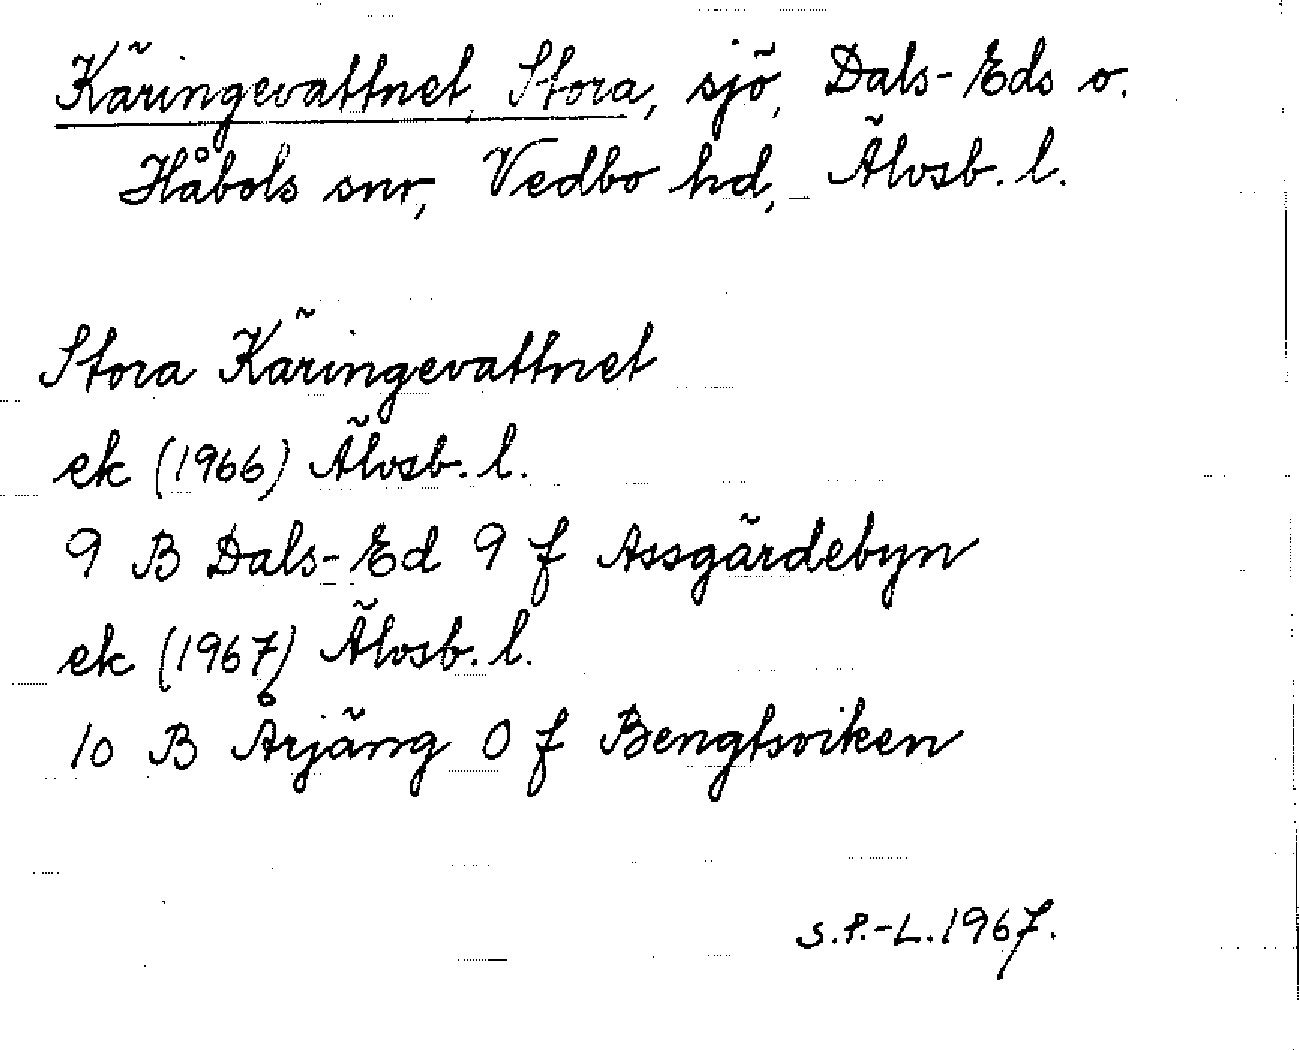 Käringevattnet, Stora, sjö, Dals-Eds o.
Håbols snr, Vedbo hd, Älvsb. l.
Stora Käringevattnet
ek (1966) Älvsb. l.
9 B Dals-Ed 9 f Assgärdebyn
ek (1967) Älvsb. l.
10 B Årjäng 0 f Bengtsviken
S.P.-L. 1967.